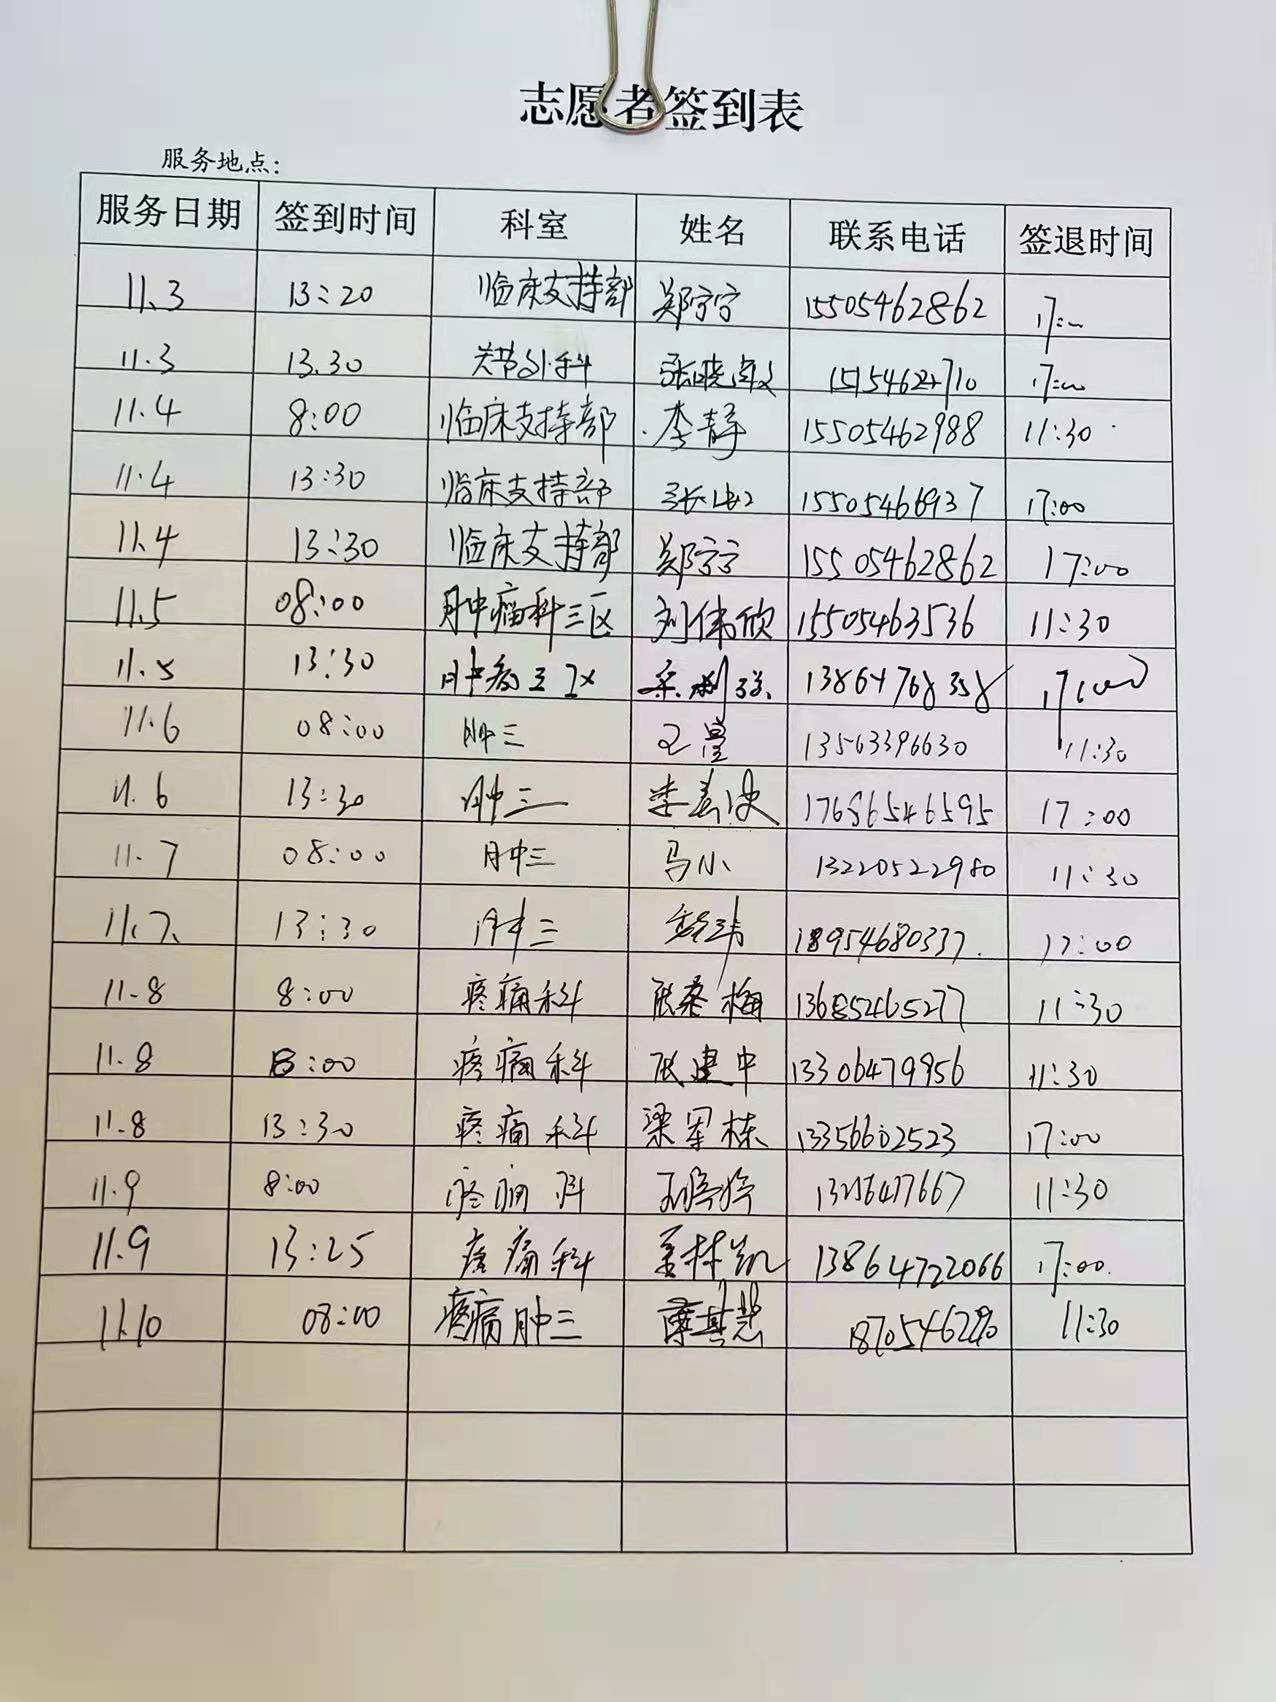 志愿者签到表
服务地点：
服务日期 签到时间 科室 姓名 联系电话 签退时间
11.3 13:20 临床支持部 郑宁宁 15505462862 17:00
11.3 13.30 关节外科 张晓敏 17:00
11.4 8:00 临床支持部 李静 15505462988 11:30
11.4 13:30 临床支持部 15505466937 17:00
11.4 13:30 临床支持部 郑宁宁 15505462862 17:00
11.5 08:00 肿瘤科三区 刘伟欣 15505463536 11:30
11.5 13:30 13864768358 17:00
11.6 08:00 肿三 13563396630 11:30
11.6 13:30 肿三 17686546595 17:00
11.7 08:00 肿三 马小 13220522980 11:30
11.7. 13:30 肿三 18954680337. 17:00
11.8 8:00 疼痛科 张春梅 13685465277 11:30
11.8 8:00 疼痛科 张建中 13306479956 11:30
11.8 13:30 疼痛科 梁军栋 13356602523 17:00
11.9 8:00 疼痛科 11:30
11.9 13:25 疼痛科 姜林凯 13864722066 17:00.
11.10 08:00 疼痛肿三 11:30